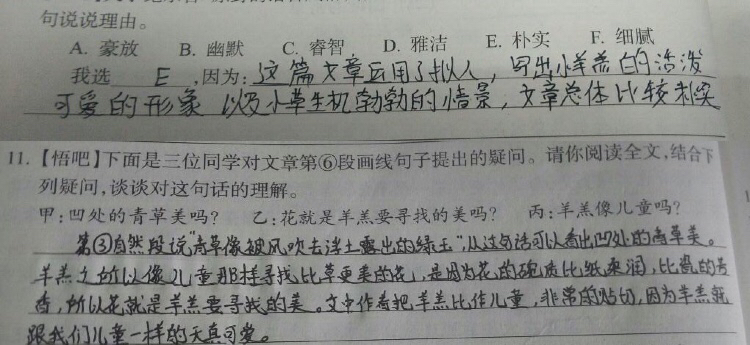 句说说理由。
A. 豪放 B. 幽默 C. 睿智 D. 雅洁 E. 朴实 F. 细腻
我选 E ,因为:这篇文章运用了拟人，写出小羊羔的活泼
可爱的形象 以及小草生机勃勃的情景，文章总体比较朴实
11.【悟吧】下面是三位同学对文章第⑥段画线句子提出的疑问。请你阅读全文,结合下
列疑问,谈谈对这句话的理解。
甲:凹处的青草美吗? 乙:花就是羊羔要寻找的美吗? 丙:羊羔像儿童吗?
第③自然段说"青草像被风吹去浮土露出的绿玉",从这句话可以看出凹处的青草美。
羊羔之所以像儿童那样寻找比草更美的花，是因为花的硬质比纸柔润，比瓷的芳
香，所以花就是羊羔要寻找的美。文中作者把羊羔比作儿童，非常的贴切，因为羊羔就
跟我们儿童一样的天真可爱。